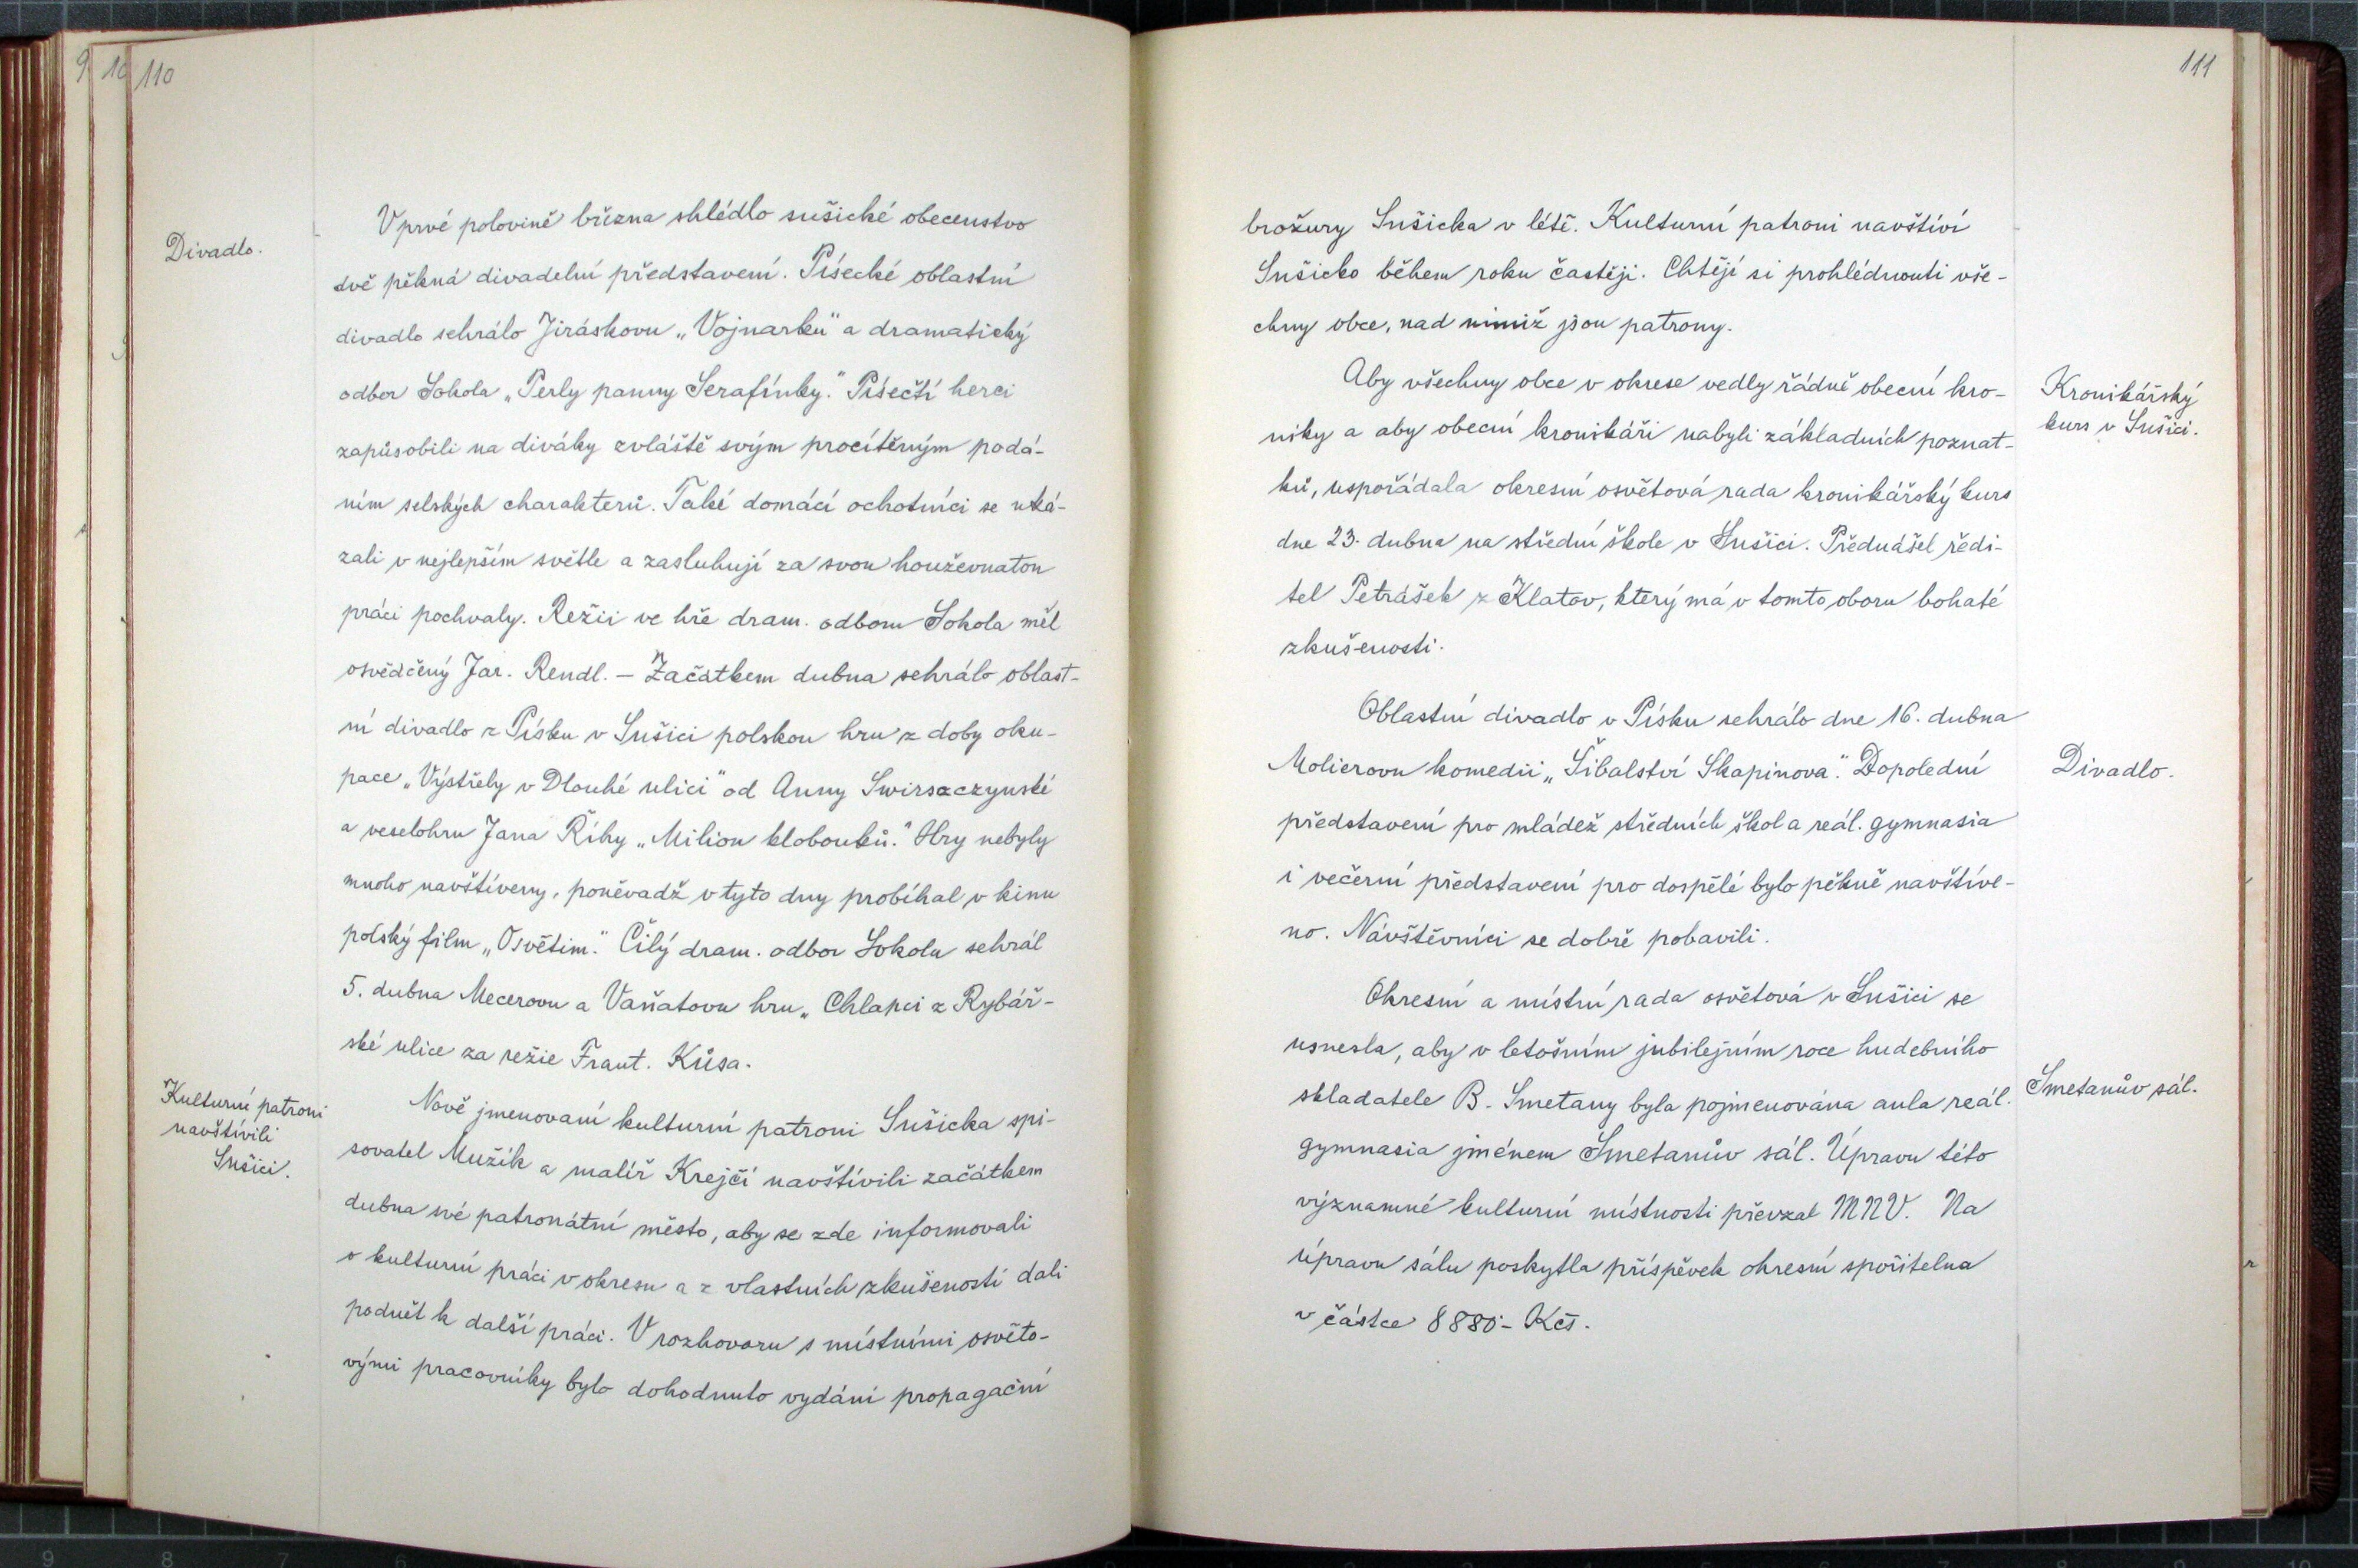 110
Divadlo.
V prvé polovině března shlédlo sušické obecenstvo
dvě pěkná divadelní představení. Písecké oblastní
divadlo sehrálo Jiráskovu „Vojnarku" a dramatický
odbor Sokola „Perly panny Serafínky." Písečtí herci
zapůsobili na diváky zvláště svým procítěným podá-
ním selských charakterů. Také domácí ochotníci se uká-
zali v nejlepším světle a zasluhují za svou houževnatou
práci pochvaly. Režii ve hře dram. odboru Sokola měl
osvědčený Jar. Rendl. – Začátkem dubna sehrálo oblast-
ní divadlo z Písku v Sušici polskou hru z doby oku-
pace „Výstřely v Dlouhé ulici" od Anny Swirszczynské
a veselohru Jana Říhy „Milion klobouků." Hry nebyly
mnoho navštíveny, poněvadž v tyto dny probíhal v kinu
polský film „Osvětim." Čilý dram. odbor Sokola sehrál
5. dubna Mecerovu a Vaňatovu hru „Chlapci z Rybář-
ské ulice za režie Frant. Kůsa.
Kulturní patroni
navštívili
Sušici.
Nově jmenovaní kulturní patroni Sušicka spi-
sovatel Mužík a malíř Krejčí navštívili začátkem
dubna své patronátní město, aby se zde informovali
o kulturní práci v okresu a z vlastních zkušeností dali
podnět k další práci. V rozhovoru s místními osvěto-
vými pracovníky bylo dohodnuto vydání propagační
111
brožury Sušicka v létě. Kulturní patroni navštíví
Sušicko během roku častěji. Chtějí si prohlédnouti vše-
chny obce, nad nimiž jsou patrony.
Kronikářský
kurs v Sušici.
Aby všechny obce v okrese vedly řádně obecní kro-
niky a aby obecní kronikáři nabyli základních poznat-
ků, uspořádala okresní osvětová rada kronikářský kurs
dne 23. dubna na střední škole v Sušici. Přednášel ředi-
tel Petrášek z Klatov, který má v tomto oboru bohaté
zkušenosti.
Oblastní divadlo v Písku sehrálo dne 16. dubna
Molierovu komedii „Šibalství Skapinova." Dopolední
Divadlo.
představení pro mládež středních škol a reál. gymnasia
i večerní představení pro dospělé bylo pěkně navštíve-
no. Návštěvníci se dobře pobavili.
Okresní a místní rada osvětová v Sušici se
usnesla, aby v letošním jubilejním roce hudebního
skladatele B. Smetany byla pojmenována aula reál.
Smetanův sál.
gymnasia jménem Smetanův sál. Úpravu této
významné kulturní místnosti převzal MNV. Na
úpravu sálu poskytla příspěvek okresní spořitelna
v částce 8880.- Kčs.